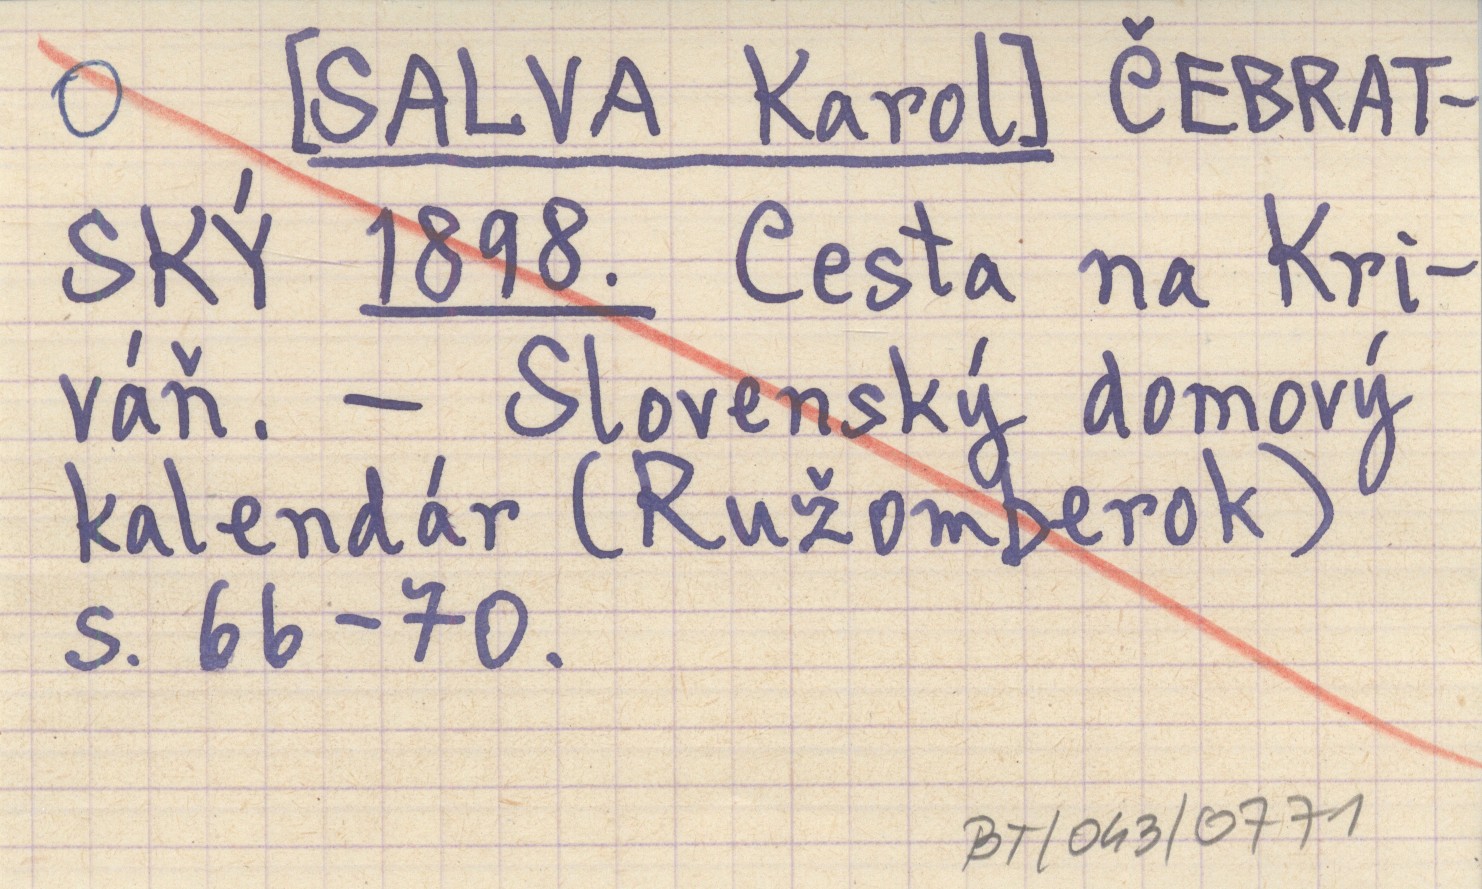 O [SALVA Karol] ČEBRAT-
SKÝ 1898. Cesta na Kri-
váň. — Slovenský domový
kalendár (Ružomberok)
s. 66-70.
BT/043/0771